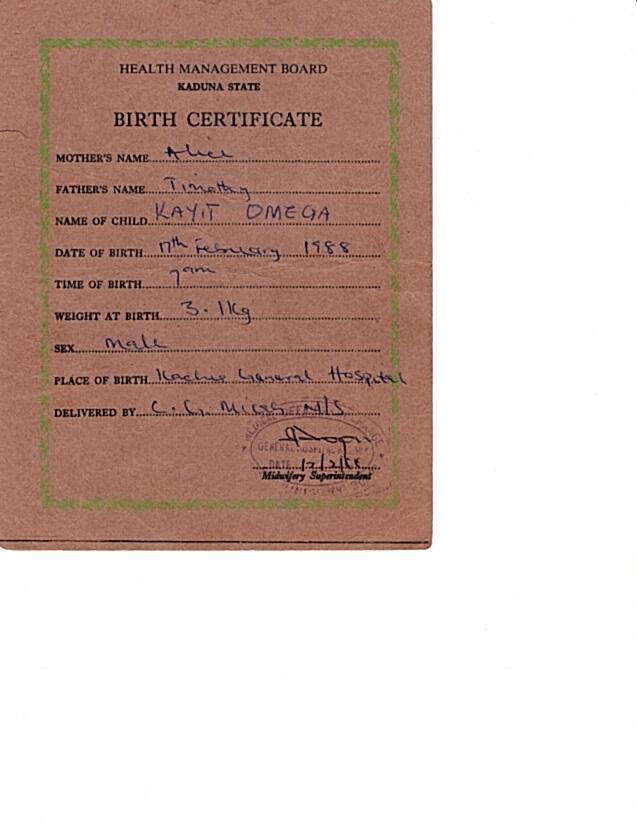 HEALTH MANAGEMENT BOARD
KADUNA STATE
BIRTH CERTIFICATE
MOTHER'S NAME Alice
FATHER'S NAME Timothy
NAME OF CHILD KAYIT OMEGA
DATE OF BIRTH 17th February 1988
TIME OF BIRTH 7am
WEIGHT AT BIRTH 3.1kg
SEX Male
PLACE OF BIRTH General Hospital
DELIVERED BY C. G.
GENERAL HOSPITAL
DATE 17/2/88
Midwifery Superintendent